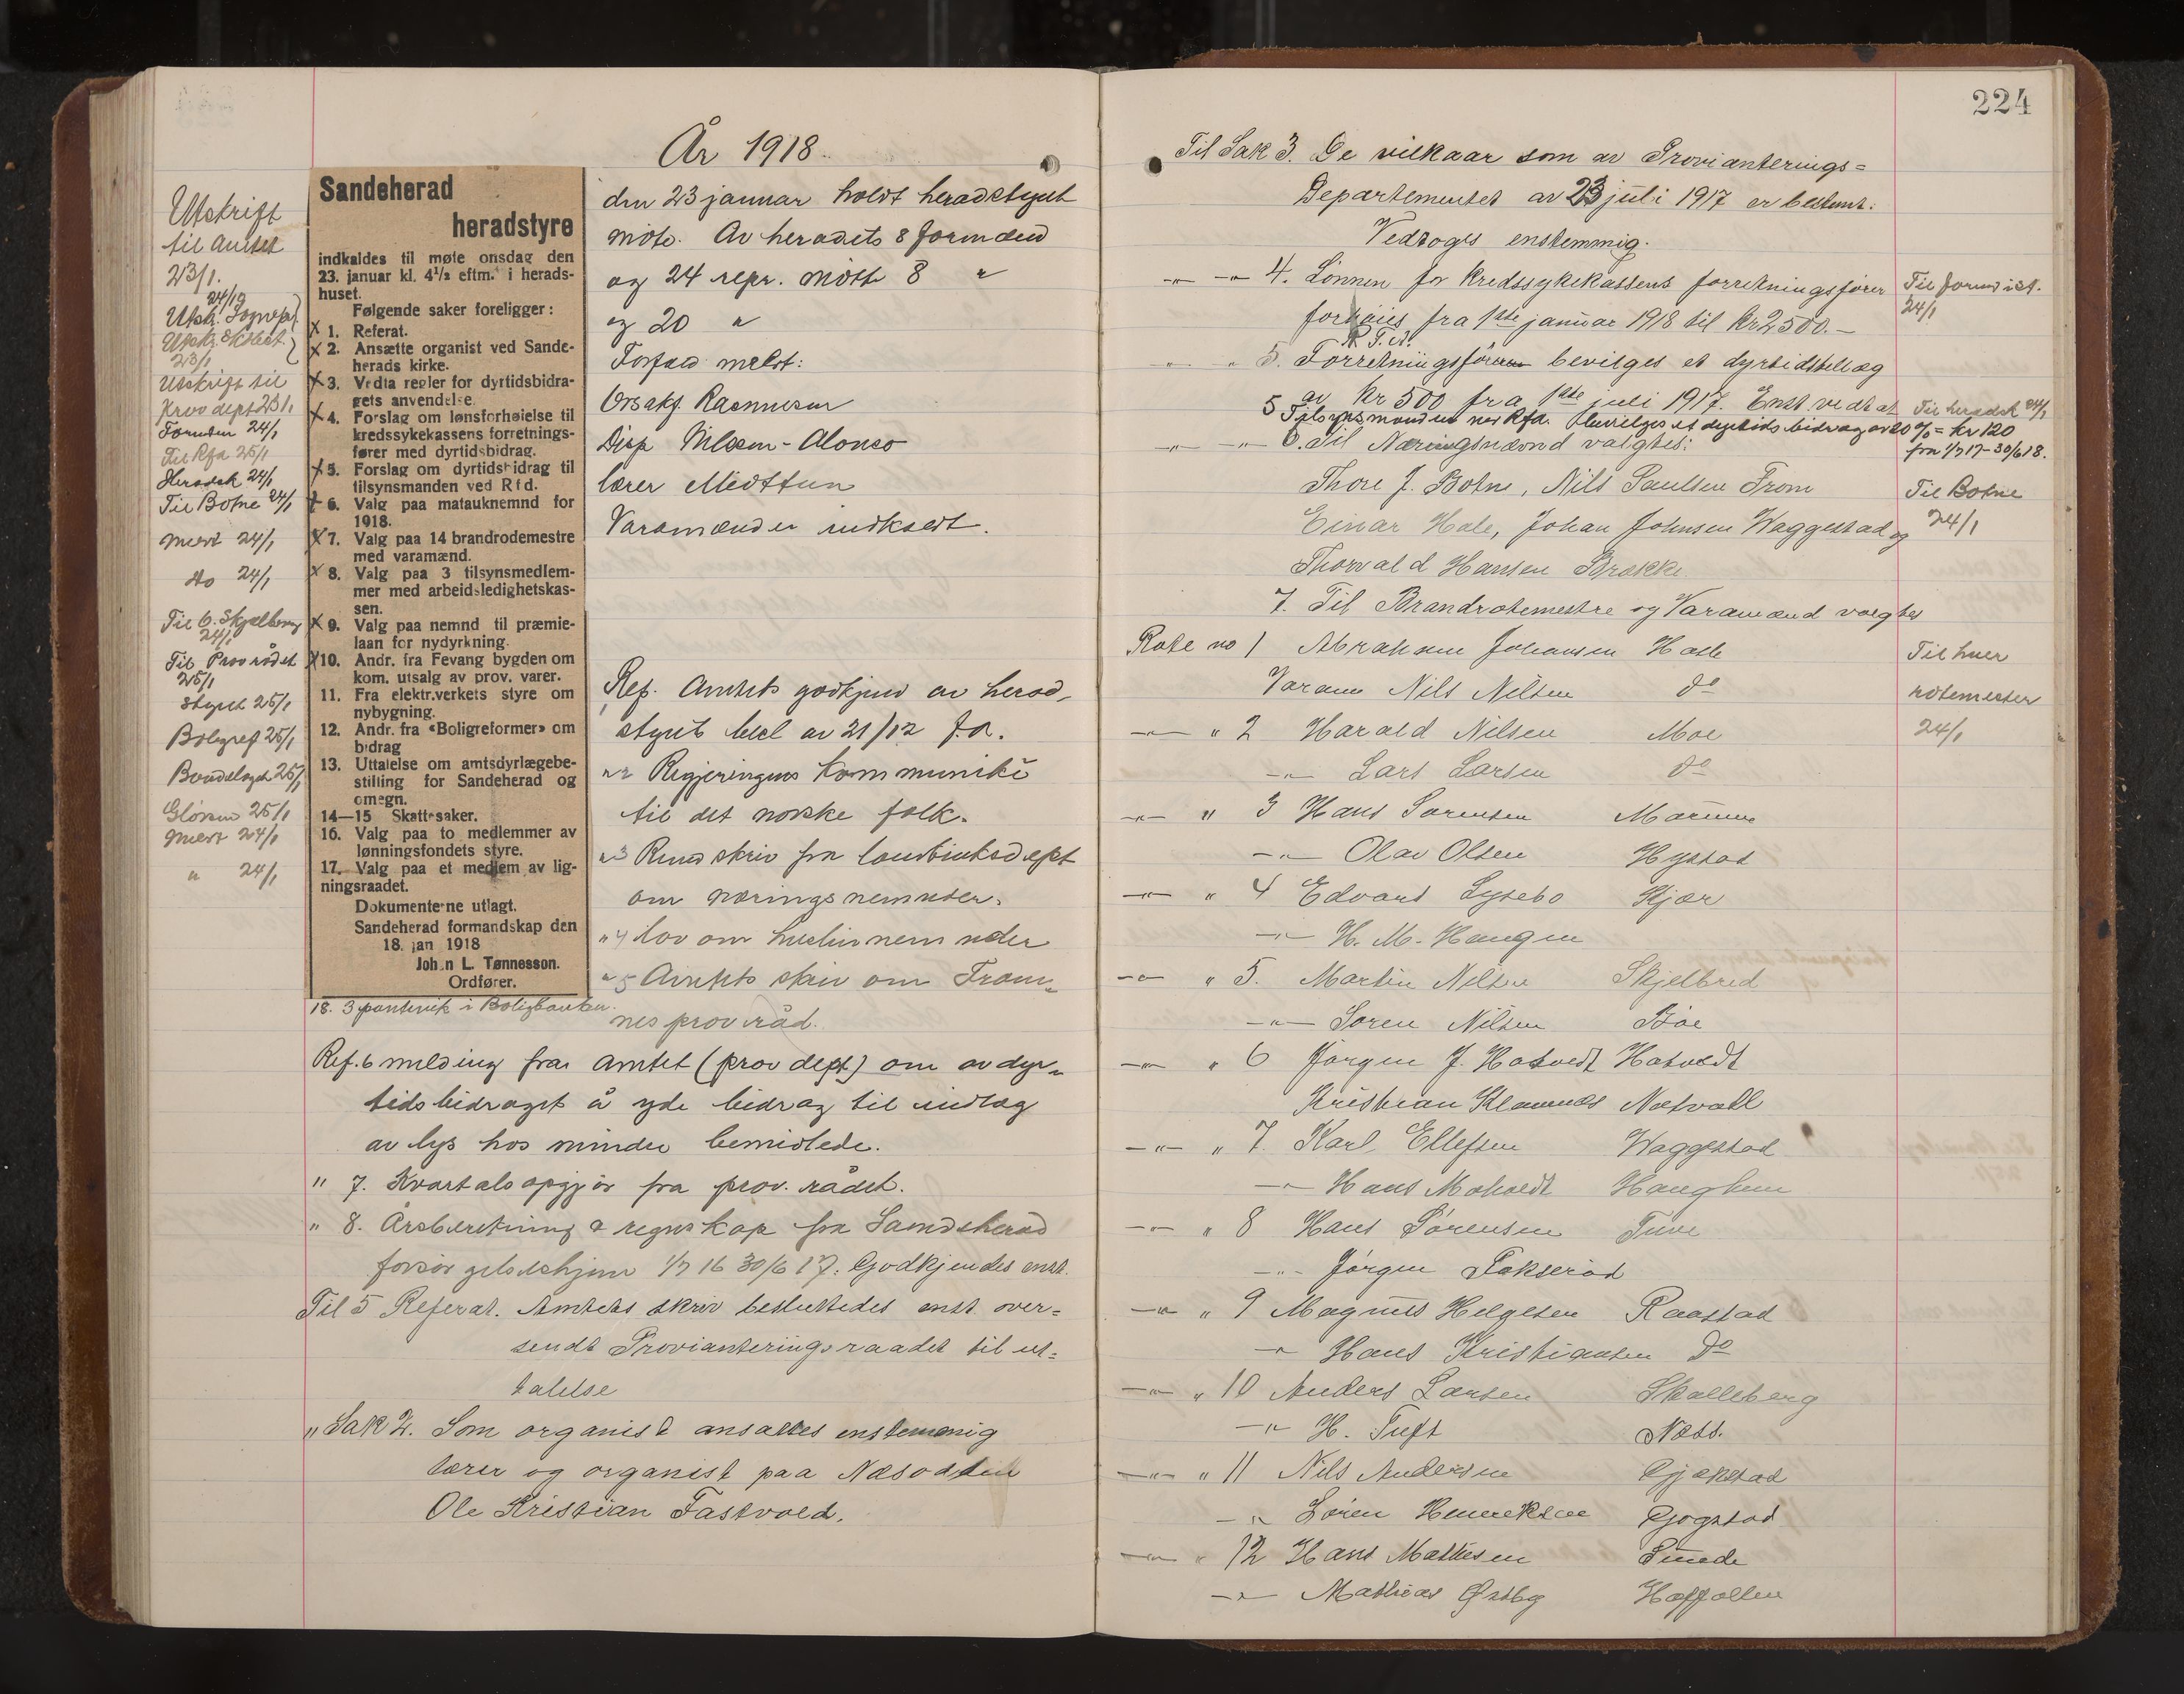 År 1918.
Utskrift
til amtet
23/1.
24/1
Utskr.
23/1
Utskrift til
Prov dept 23/1
Formden 24/1
Til Rfa 25/1
Heradsk 24/1
Til Botne 24/1
Mevt 24/1
do 24/1
Til O. Skjelberg
24/1
Til Provrådet
25/1
Styret 25/1
Boligref 25/1
25/1
25/1
24/1
" 24/1
Sandeherad
heradstyre
indkaldes til møte onsdag den
23. januar kl. 4½ eftm. i herads-
huset.
Følgende saker foreligger:
X 1. Referat.
X 2. Ansætte organist ved Sande-
herads kirke.
X 3. Vedta regler for dyrtidsbidra-
gets anvendelse.
X 4. Forslag om lønsforhøielse til
kredssykekassens forretnings-
fører med dyrtidsbidrag.
X 5. Forslag om dyrtidsbidrag til
tilsynsmanden ved Rfd.
X 6. Valg paa matauknemnd for
1918.
X 7. Valg paa 14 brandrodemestre
med varamænd.
X 8. Valg paa 3 tilsynsmedlem-
mer med arbeidsledighetskas-
sen.
X 9. Valg paa nemnd til præmie-
laan for nydyrkning.
X 10. Andr. fra Fevang bygden om
kom. utsalg av prov. varer.
11. Fra elektr.verkets styre om
nybygning.
12. Andr. fra «Boligreformer» om
bidrag
13. Uttalelse om amtsdyrlægebe-
stilling for Sandeherad og
omegn.
14—15 Skattesaker.
16. Valg paa to medlemmer av
lønningsfondets styre.
17. Valg paa et medlem av lig-
ningsraadet.
Dokumenterne utlagt.
Sandeherad formandskap den
18. jan 1918
Johan L. Tønnesson.
Ordfører.
18. 3 i Boligbanken.
den 23 januar holdt heradstyret
møte. Av heradets 8 formænd
og 24 repr. møtte 8 "
og 20 "
Forfald meldt:
Orsakf. Rasmussen
Disp Nilsen-Alonso
lærer Midttun
Varamænd er indkaldt.
Ref. 1 Amtets godkjend av herad-
styrets besl av 21/12 f.a.
" 2 Regjeringens Kommuniké
til det norske folk.
" 3 Rundskriv fra landbruksdept
om næringsnemnder.
" 4 lov om husleienemnder
" 5 Amtets skriv om Fram-
nes provråd.
Ref. 6 melding fra amtet (prov dept) om av dyr-
tidsbidraget å yde bidrag til indlæg
av lys hos mindre bemidlede.
" 7. Kvartalsopgjør fra prov. rådet.
" 8. Årsberetning & regnskap fra Sandeherad
forsørgelseshjem 1/7 16 30/6 17. Godkjendes enst.
Til 5 Referat. Amtets skriv besluttedes enst. over-
sendt Provianteringsraadet til ut-
talelse
" Sak 2. Som organist ansættes enstemmig
lærer og organist paa Næsodden
Ole Kristian Fastvold.
224
Til Sak 3. De vilkaar som av Provianterings-
Departementet av 23 juli 1917 er bestemt.
Vedtoges enstemmig.
" " 4. Lønnen for Kredssykekassens forretningsfører
forhøies fra 1ste januar 1918 til Kr 2500.-
" " 5. Forretningsføreren bevilges et dyrtidstillæg
av Kr 500 fra 1ste juli 1917. Enst. vedtat
5 Tilsynsmanden ved Rfa. bevilges et dyrtidsbidrag av 20 % = kr 120
fra 1/7 17 - 30/6 18.
" " 6. Til Næringsnævnd valgtes:
Thore J. Botne, Nils Paulsen From
Einar Hale, Johan Johnsen Waggestad og
Thorvald Hansen Brekke
7. Til Brandrotemestre og Varamænd valgtes
Rote no 1 Abraham Johansen Hasle
Varam Nils Nilsen do
" " 2 Harald Nilsen Moe
" Lars Larsen do
" " 3 Hans Sørensen Marum
" Olav Olsen Hystad
" " 4 Edvard Lysebo Kjær
" H. M. Haugen
" " 5. Martin Nilsen Skjelbred
" Søren Nilsen Bøe
" " 6 Jørgen J. Hotvedt Hotvedt
Kristian Klavenæs Natvall
" " 7 Karl Ellefsen Waggestad
" Hans Moholdt Haughem
" " 8 Hans Sørensen Tuve
" Jørgen Fokserød
" " 9 Magnus Helgesen Raastad
" Hans Kristiansen do
" " 10 Anders Larsen Skalleberg
" H. Tuft Næss.
" " 11 Nils Andersen Gjekstad
" Søren Henriksen Gjogstad
" " 12 Hans Mathisen Sunde
" Mathias Østby Haffallen
Til formd ist.
24/1
Til heradsk 24/1
Til Botne
24/1
Til hver
rotemester
24/1